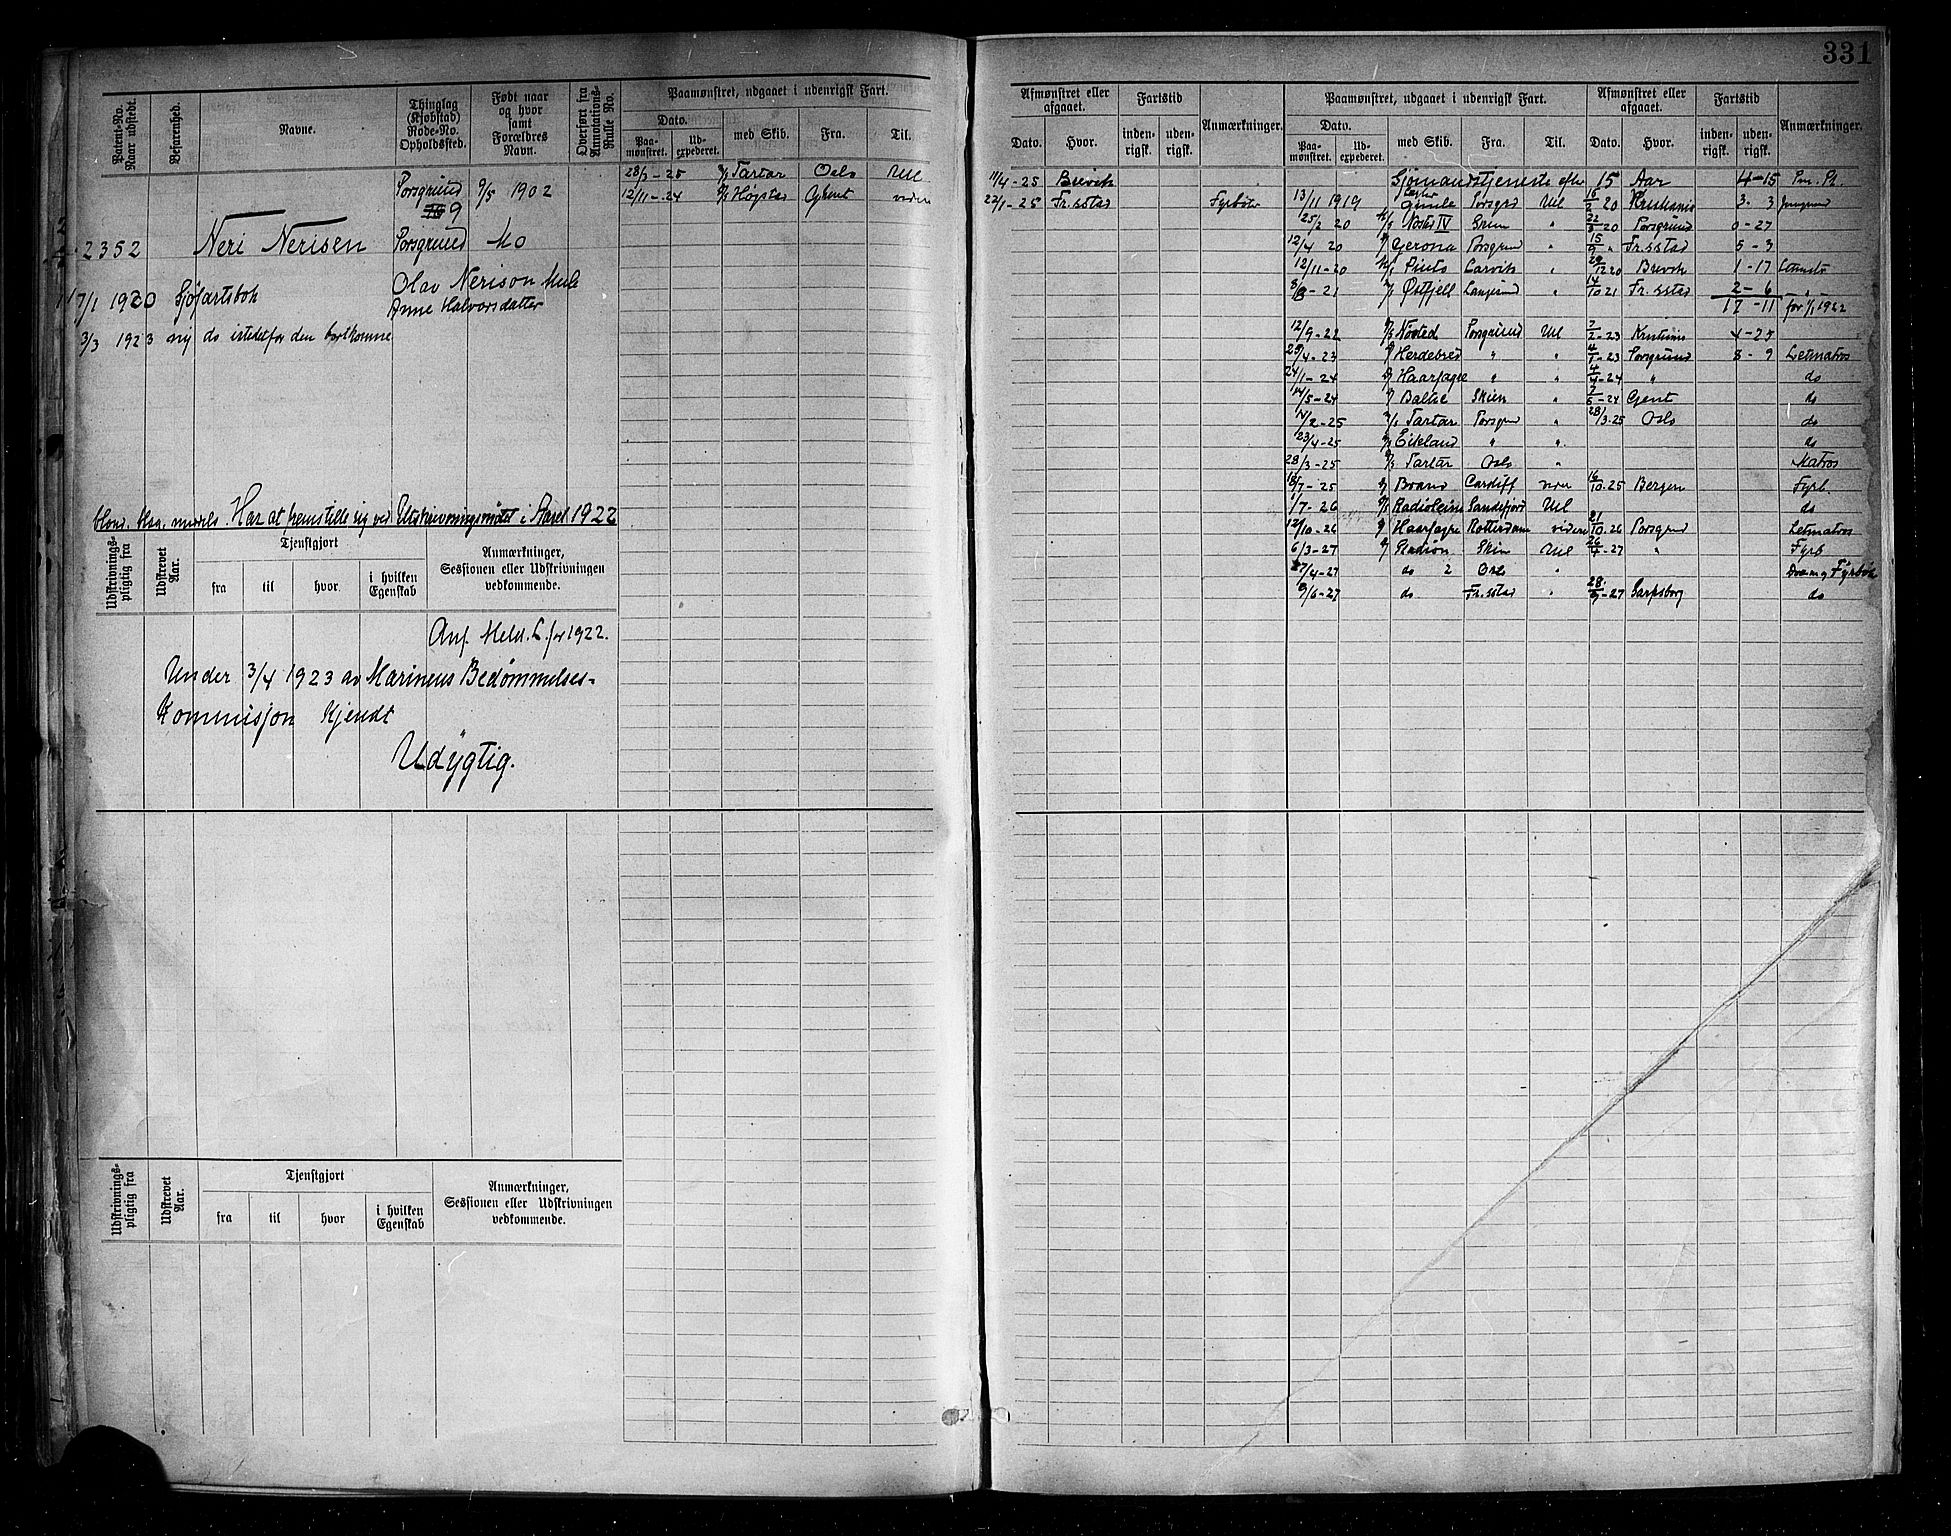 331
Patent-No. Naar udstedt.
Befarenhed.
Navne.
Thinglag (Kjøbstad) Rode-No. Opholdssted.
Født naar og hvor samt Forældres Navn.
Overført fra Annotations-Rulle No.
Paamønstret, udgaaet i udenrigsk Fart.
Dato. Paa-mønstret. Ud-expederet. med Skib. Fra. Til.
28/3-25 Tartar Oslo Utl
12/11-24 Høgstad Ghent videre
Porsgrund 9/5 1902
9
2352 Neri Nerisen Porsgrund Mo
Olav Nerison
17/1 1920 Sjøfartsbok Anne Halvorsdatter
3/3 1923 ny do istedetfor den bortkomne
blond, blaa, middels. Har at fremstille sig ved Utskrivningsmøtet i Aaret 1922
Udskrivnings-pligtig fra
Udskrevet Aar.
Tjenstgjort
fra til hvor i hvilken Egenskab
Anmærkninger, Sessionen eller Udskrivningen vedkommende.
Anf. Meld. L. for 1922.
Under 3/4 1923 av Marinens Bedømmelses-
Kommisjon Kjendt
Udygtig.
Udskrivnings-pligtig fra
Udskrevet Aar.
Tjenstgjort
fra til hvor i hvilken Egenskab
Anmærkninger, Sessionen eller Udskrivningen vedkommende.
Afmønstret eller afgaaet. Fartstid Anmærkninger.
Dato. Hvor. inden-rigsk. uden-rigsk.
11/4-25 Brevik
22/1-25 Fr.sstad Fyrbøter
Paamønstret, udgaaet i udenrigsk Fart. Afmønstret eller afgaaet. Fartstid Anmærkninger.
Dato. Paa-mønstret. Ud-expederet. med Skib. Fra. Til. Dato. Hvor. inden-rigsk. uden-rigsk.
Sjømandstjeneste efter 15 Aar 4-15
13/11 1919 Gunda Porsgrd Utl 20 Kristiania 3-3 Jungmand
25/2 20 IV " 20 Porsgrund 0-27
12/4 20 Gerona Porsgrund " 15/9 " Fr.sstad 5-3
12/11-20 Pinto Larvik " 29/12 20 Brevik 1-17 Letmatr
21 Østfjell Langesund " 14/10 21 Fr.sstad 2-6 "
17-11 for 1/1 1922
12/9-22 Nøsted Porsgrund Utl 7/2-23 Kristiania 4-25
25/4-23 Herdebred " " 23 Porsgrund 8-9 Letmatros
24/1-24 Haarfagre " " 4/4-24 " do
14/5-24 Balke Skien " 24 Gent do
14/2-25 Tartar Porsgrund " 28/3-25 Oslo do
23/4-25 Eikland " " do
28/3-25 Tartar Oslo " Matros
18/7-25 Brand Cardiff videre 16/10-25 Bergen Fyrb.
1/7-26 Radioleine Sandefjord Utl do
12/10-26 Haarfagre Rotterdam videre 21/10-26 Porsgrund Letmatros
6/3-27 Radion Skien Utl 26/4-27 " Fyrb
27/4-27 do 2 Oslo " Fyrbøt
9/6-27 do Fr.sstad " 28/9-27 Sarpsborg do